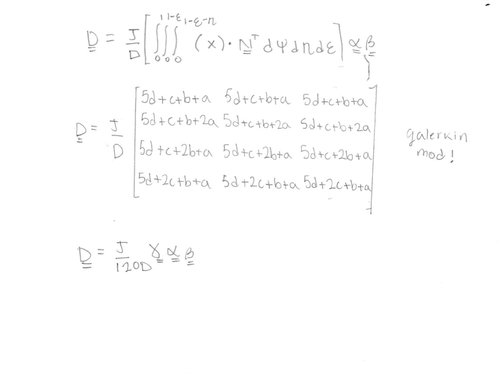 D = J/D [∭ (x)·N^T dψ dη dε] α β
1 1-ε 1-ε-η
0 0 0
5d+c+b+a 5d+c+b+a 5d+c+b+a
5d+c+b+2a 5d+c+b+2a 5d+c+b+2a
D = J/D
5d+c+2b+a 5d+c+2b+a 5d+c+2b+a
5d+2c+b+a 5d+2c+b+a 5d+2c+b+a
galerkin
mod!
D = J/120D γ α β